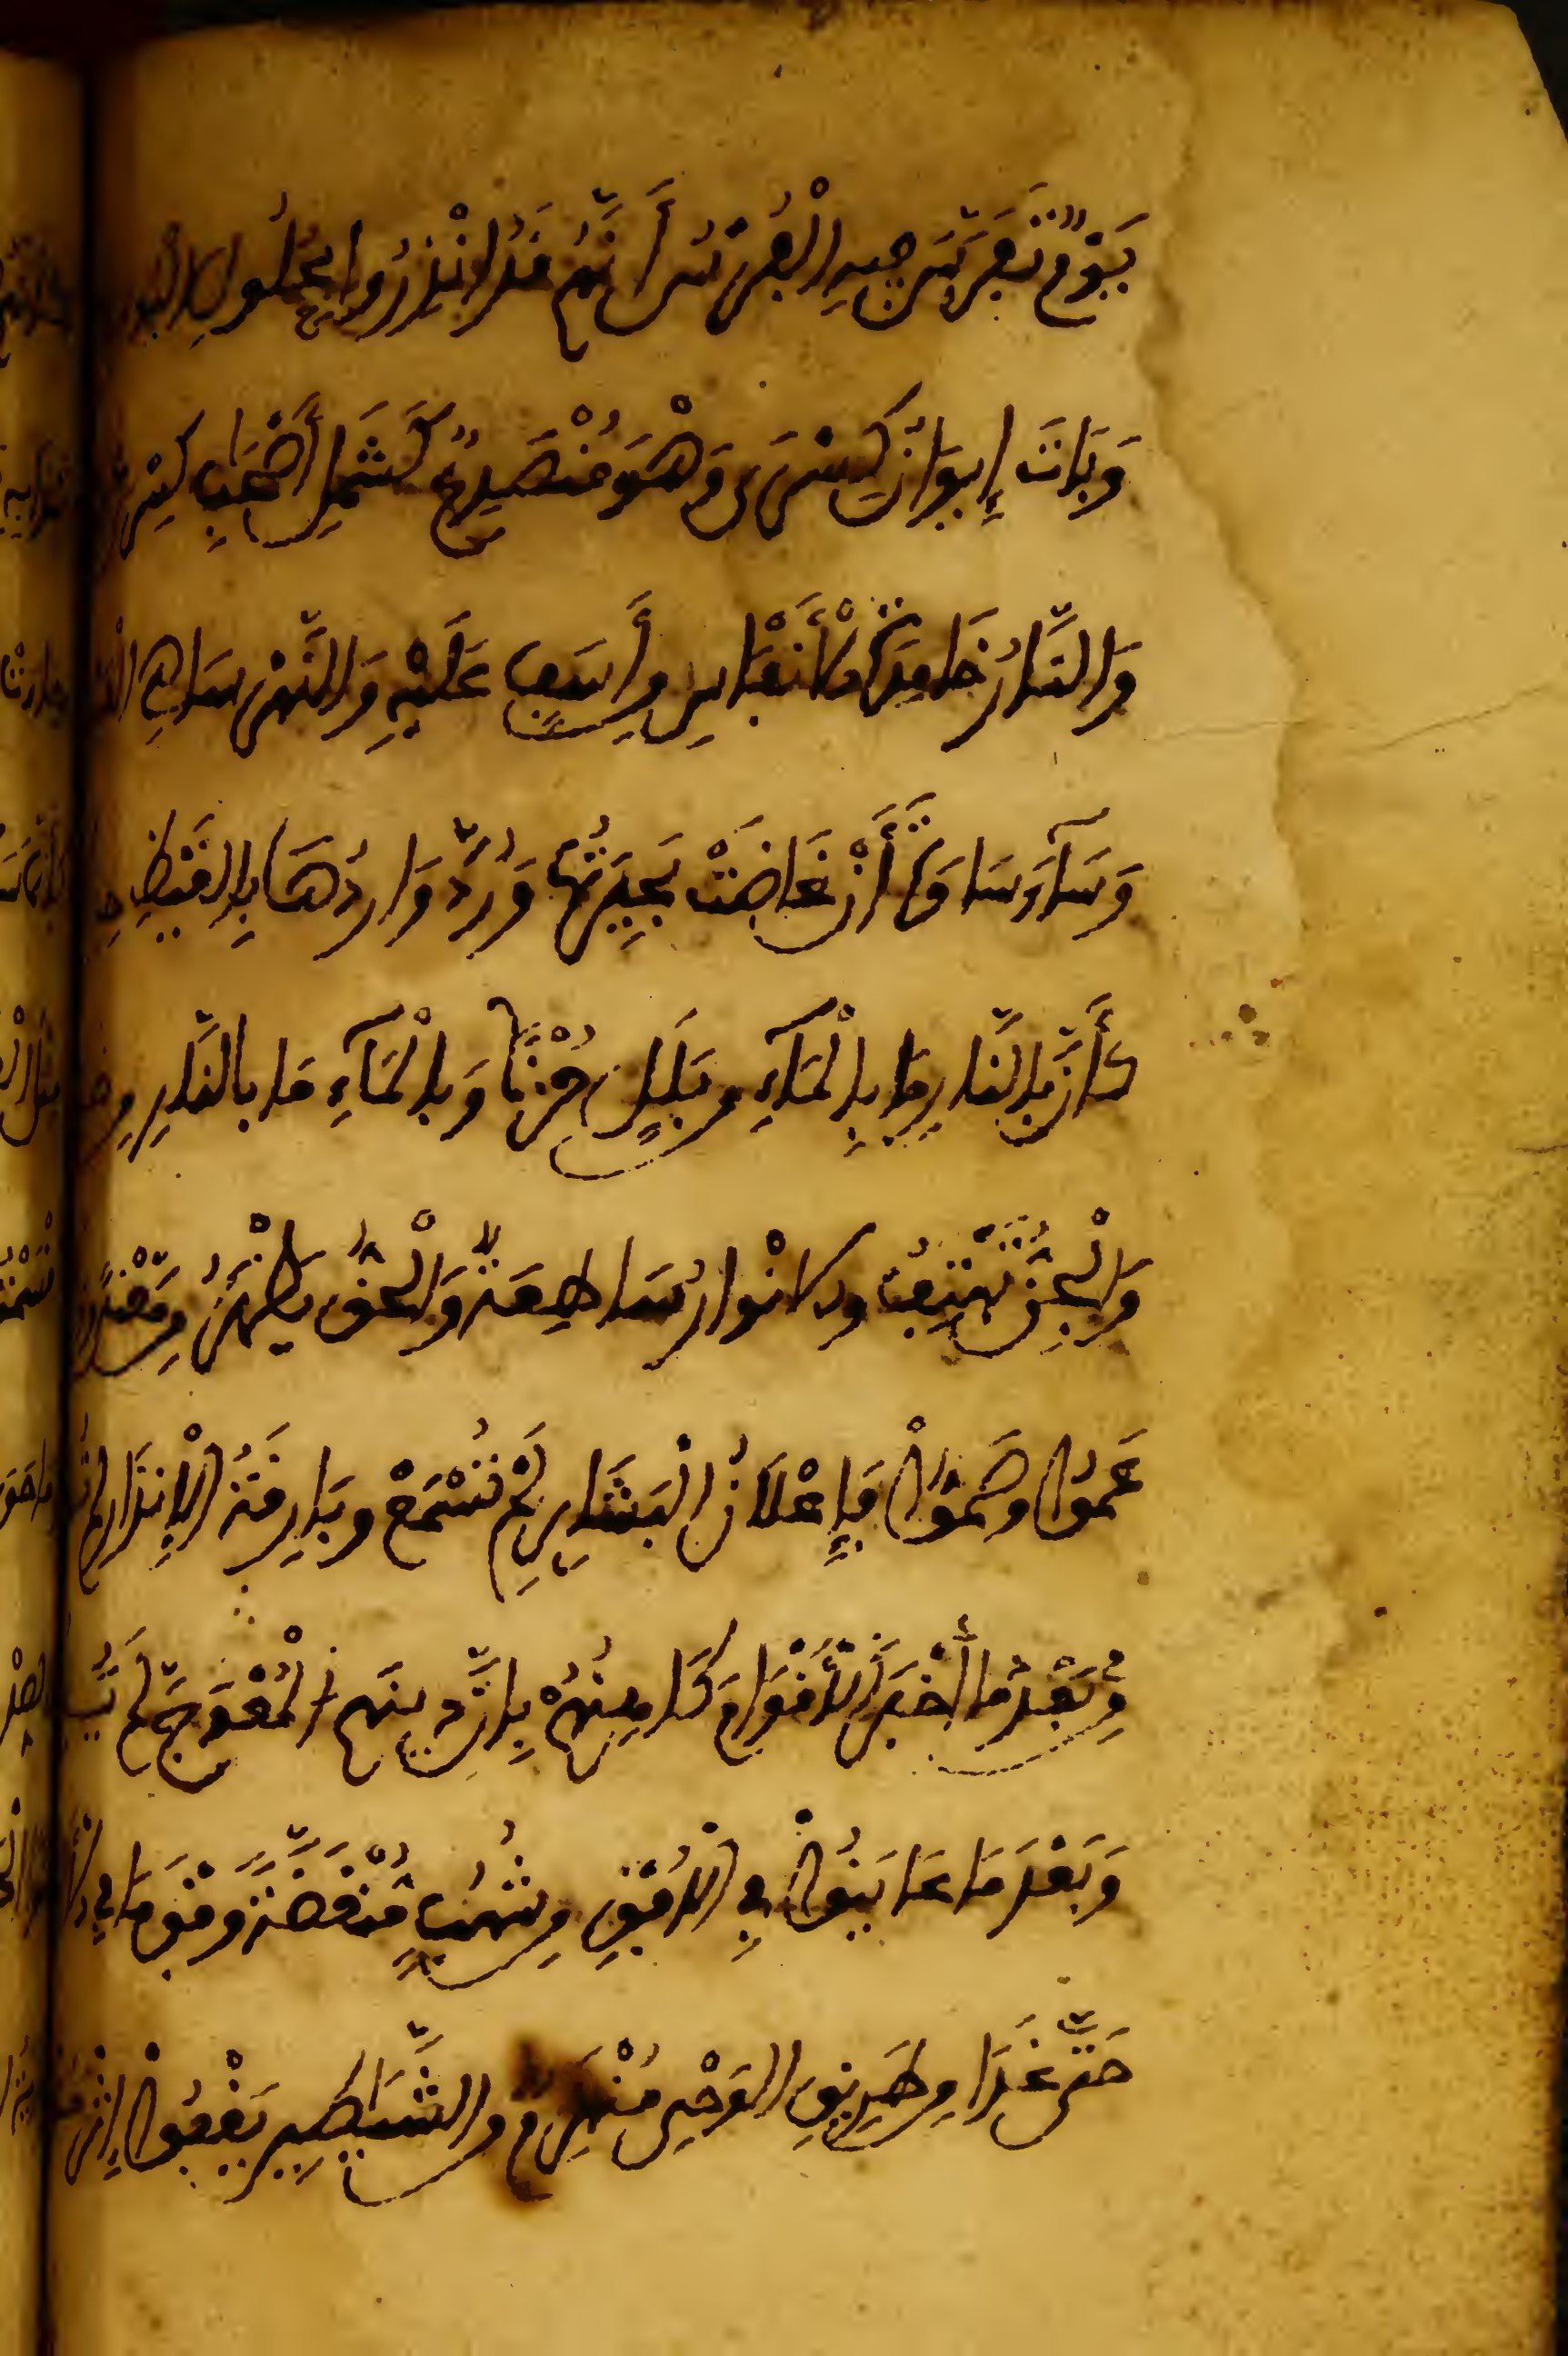 يَوْمٌ تَفَرَّسَ فِيهِ الْفُرْسُ أَنَّهُمُ قَدُ انْذِرُوا بِحُلُولِ الْبُو
وَبَاتَ إِيوَانُ كِسْرَى وَهْوَ مُنْصَدِعٌ كَشَمْلِ أَصْحَابِ كِسْرَى
وَالنَّارُ خَامِدَةُ الْأَنْفَاسِ مِنْ أَسَفٍ عَلَيْهِ وَالنَّهْرُ سَاهِي الْ
وَسَآءَ سَاوَةَ أَنْ غَاضَتْ بُحَيْرَتُهَا وَرُدَّ وَارِدُهَا بِالْغَيْظِ حِ
كَأَنَّ بِالنَّارِ مَا بِالْمَآءِ مِنْ بَلَلٍ حُزْنًا وَبِالْمَآءِ مَا بِالنَّارِ مِن
وَالْجِنُّ تَهْتِفُ وَالَانْوَارُ سَاطِعَةٌ وَالْحَقُّ يَظْهَرُ مِنْ مَعْنًى
عَمُوا وَصَمُّوا فَإِعْلَانُ الْبَشَايِرِ لَمْ تُسْمَعْ وَبَارِقَةُ الْإِنْذَارِ لَمْ
مِنْ بَعْدِ مَا أَخْبَرَ الْأَقْوَامَ كَاهِنُهُمْ بِأَنَّ دِينَهُمُ الْمُعْوَجَّ لَمْ يَ
وَبَعْدَ مَا عَايَنُوا فِي الْأُفْقِ مِنْ شُهُبٍ مُنْقَضَّةٍ وَفْقَ مَا فِي الْأَ
حَتَّى غَدَا عَنْ طَرِيقِ الْوَحْيِ مُنْهَزِمٌ مِنَ الشَّيَاطِينِ يَقْفُوا إِثْرَ